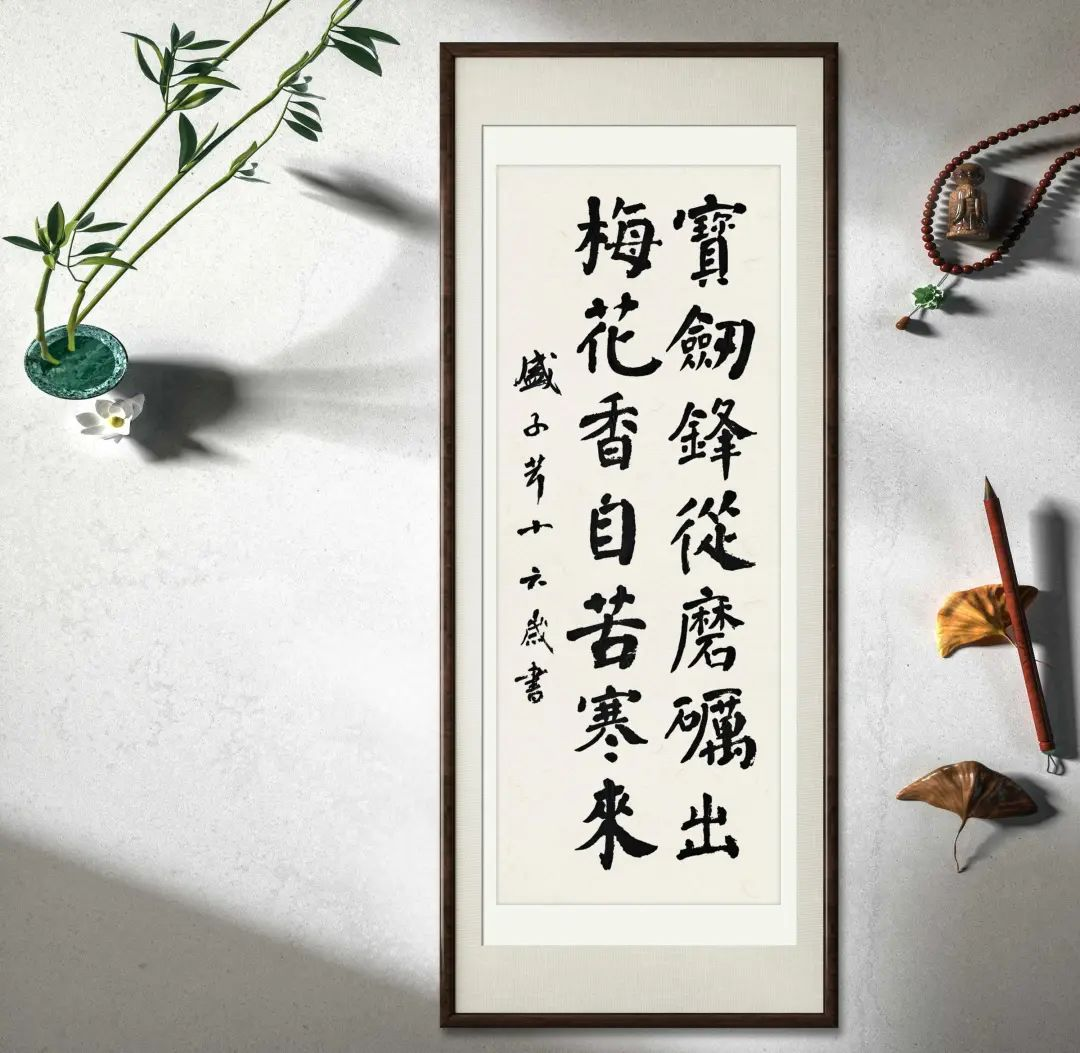 寶劒鋒從磨礪出
梅花香自苦寒來
盛子芹十六歲書